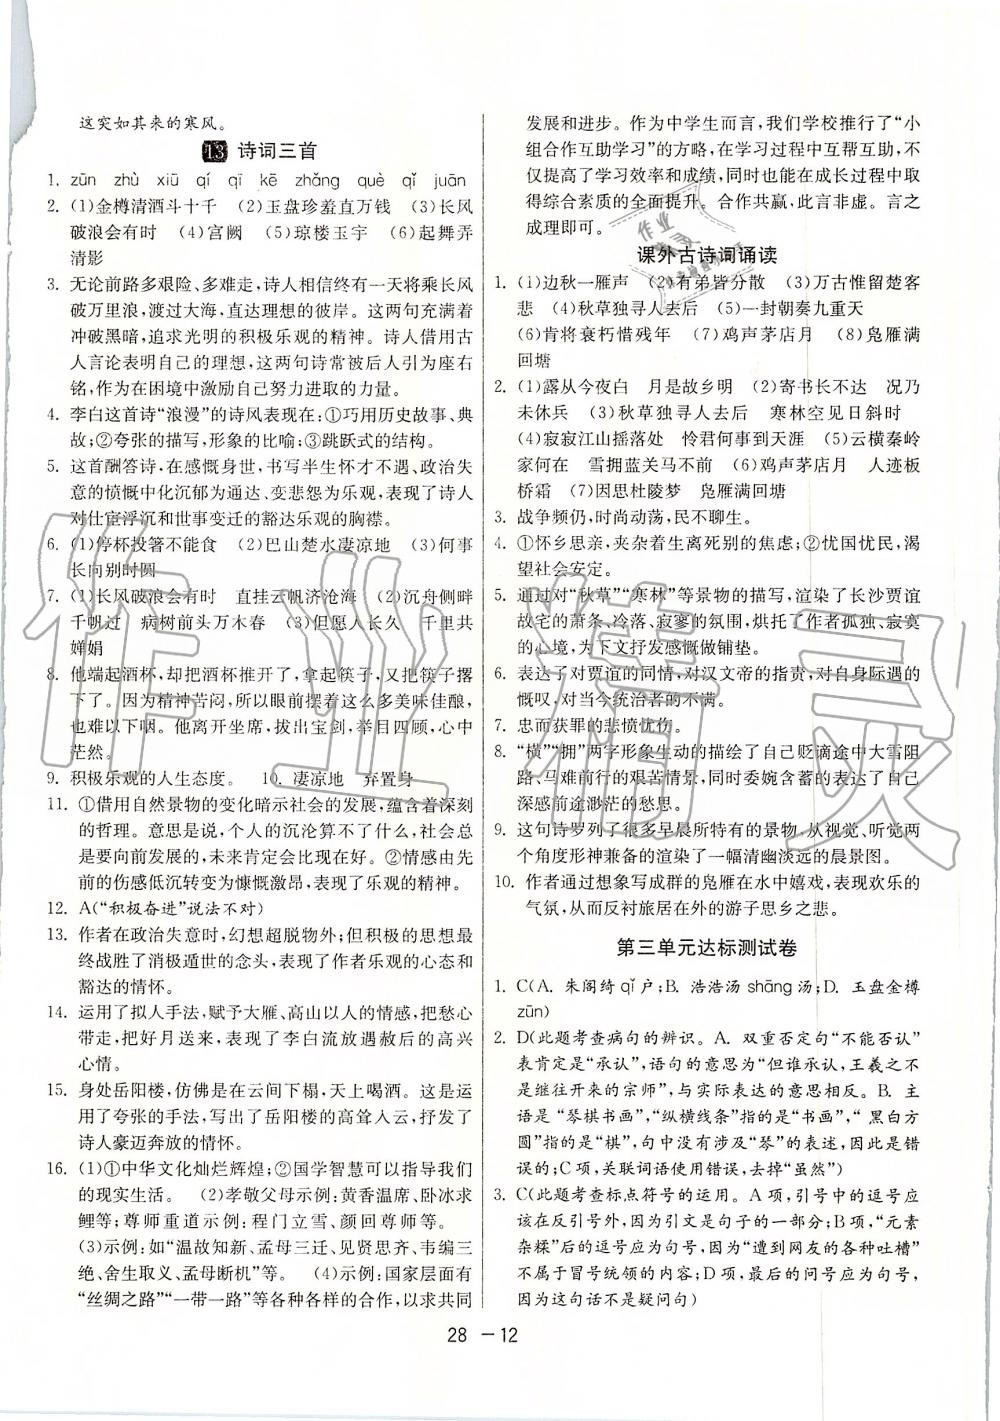 这突如其来的寒风。
13 诗词三首
1. zūn zhù xiū qí qī kē zhǎng què qǐ juān
2. (1)金樽清酒斗十千 (2)玉盘珍羞直万钱 (3)长风
破浪会有时 (4)宫阙 (5)琼楼玉宇 (6)起舞弄
清影
3. 无论前路多艰险、多难走,诗人都坚信:总有一天将乘
长风破巨浪,渡过大海,直达理想的彼岸。这两句充满着
冲破黑暗,追求光明的积极乐观的精神。诗人借用古
人言论表明自己的理想,这两句诗常被后人引为座右
铭,作为在困境中激励自己努力进取的力量。
4. 李白这首诗“浪漫”的诗风表现在:①巧用历史故事、典
故;②夸张的描写,形象的比喻;③跳跃式的结构。
5. 这首酬答诗,在感慨身世,书写半生怀才不遇、政治失
意的愤慨中化沉郁为通达、变悲怨为乐观,表现了诗人
对仕宦浮沉和世事变迁的豁达乐观的胸襟。
6. (1)停杯投箸不能食 (2)巴山楚水凄凉地 (3)何事
长向别时圆
7. (1)长风破浪会有时 直挂云帆济沧海 (2)沉舟侧畔
千帆过 病树前头万木春 (3)但愿人长久 千里共
婵娟
8. 他端起酒杯,却把酒杯推开了,拿起筷子,又把筷子撂
下了。因为精神苦闷,所以眼前摆着这么多美味佳酿,
也难以下咽。他离开坐席,拔出宝剑,举目四顾,心中
茫然。
9. 积极乐观的人生态度。 10. 凄凉地 弃置身
11. ①借用自然景物的变化暗示社会的发展,蕴含着深刻
的哲理。意思是说,个人的沉沦算不了什么,社会总
是要向前发展的,未来肯定会比现在好。②情感由先
前的伤感低沉转变为慷慨激昂,表现了乐观的精神。
12. A(“积极奋进”说法不对)
13. 作者在政治失意时,幻想超脱物外;但积极的思想最
终战胜了消极遁世的念头,表现了作者乐观的心态和
豁达的情怀。
14. 运用了拟人手法,赋予大雁、高山以人的情感,把愁心
带走,把好月送来,表现了李白流放遇赦后的高兴
心情。
15. 身处岳阳楼,仿佛是在云间下榻,天上喝酒。这是运
用了夸张的手法,写出了岳阳楼的高耸入云,抒发了
诗人豪迈奔放的情怀。
16. (1)①中华文化灿烂辉煌;②国学智慧可以指导我们
的现实生活。 (2)孝敬父母示例:黄香温席、卧冰求
鲤等;尊师重道示例:程门立雪、颜回拜师等。
(3)示例:如“温故知新、孟母三迁、见贤思齐、韦编三
绝、舍生取义、孟母断机”等。 (4)示例:国家层面有
“丝绸之路”“一带一路”等各种各样的合作,以求共同
发展和进步。作为中学生而言,我们学校推行了“小
组合作互助学习”的方略,在学习过程中互帮互助,不
仅提高了学习效率和成绩,同时也能在成长过程中取
得综合素质的全面提升。合作共赢,此言非虚。言之
成理即可。
课外古诗词诵读
1. (1)边秋一雁声 (2)有弟皆分散 (3)万古惟留楚客
悲 (4)秋草独寻人去后 (5)一封朝奏九重天
(6)肯将衰朽惜残年 (7)鸡声茅店月 (8)凫雁满
回塘
2. (1)露从今夜白 月是故乡明 (2)寄书长不达 况乃
未休兵 (3)秋草独寻人去后 寒林空见日斜时
(4)寂寂江山摇落处 怜君何事到天涯 (5)云横秦岭
家何在 雪拥蓝关马不前 (6)鸡声茅店月 人迹板
桥霜 (7)因思杜陵梦 凫雁满回塘
3. 战争频仍,时尚动荡,民不聊生。
4. ①怀乡思亲,夹杂着生离死别的焦虑;②忧国忧民,渴
望社会安定。
5. 通过对“秋草”“寒林”等景物的描写,渲染了长沙贾谊
故宅的萧条、冷落、寂寥的氛围,烘托了作者孤独、寂寞
的心境,为下文抒发感慨做铺垫。
6. 表达了对贾谊的同情,对汉文帝的指责,对自身际遇的
慨叹,对当今统治者的不满。
7. 忠而获罪的悲愤忧伤。
8. “横”“拥”两字形象生动的描绘了自己贬谪途中大雪阻
路、马难前行的艰苦情景,同时委婉含蓄的表达了自己
深感前途渺茫的愁思。
9. 这句诗罗列了很多早晨所特有的景物,从视觉、听觉两
个角度形神兼备的渲染了一幅清幽淡远的晨景图。
10. 作者通过想象写成群的凫雁在水中嬉戏,表现欢乐的
气氛,从而反衬旅居在外的游子思乡之悲。
第三单元达标测试卷
1. C(A. 朱阁绮qǐ户;B. 浩浩汤shāng汤;D. 玉盘金樽
zūn)
2. D(此题考查病句的辨识。A. 双重否定句“不能否认”
表肯定是“承认”,语句的意思为“但谁承认,王羲之不
是继往开来的宗师”,与实际表达的意思相反。B. 主
语是“琴棋书画”,“纵横线条”指的是“书画”,“黑白方
圆”指的是“棋”,句中没有涉及“琴”的表述,因此是错
误的;C项,关联词语使用错误,去掉“虽然”)
3. C(此题考查标点符号的运用。A项,引号中的逗号应
该在引号外,因为引文是句子的一部分;B项,“元素
杂糅”后的逗号应为句号,因为“遭到网友的各种吐槽”
不属于冒号统领的内容;D项,最后的问号应为句号,
因为这句话不是疑问句)
28 -12
作业精灵